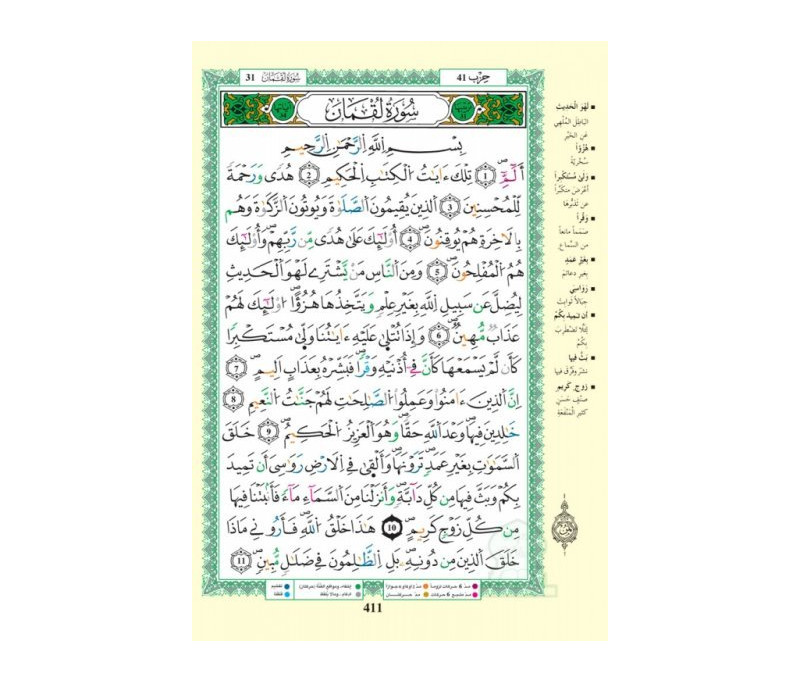 حِزْب 41
سُورَةُ لُقْمَان 31
سُورَةُ لُقْمَان
بِسْمِ اللَّهِ الرَّحْمَٰنِ الرَّحِيمِ
أَلَٓمِّٓۖ (1) تِلْكَ ءَايَٰتُ اُلْكِتَٰبِ اِلْحَكِيمِ (2) هُدىً وَرَحْمَةً
لِّلْمُحْسِنِينَ (3) اَلذِينَ يُقِيمُونَ اَلصَّلَوٰةَ وَيُوتُونَ اَلزَّكَوٰةَ وَهُم
بِالَاخِرَةِ هُمْ يُوقِنُونَۖ (4) أُوْلَٰٓئِكَ عَلَىٰ هُدىً مِّن رَّبِّهِمْۖ وَأُوْلَٰٓئِكَ
هُمُ اُلْمُفْلِحُونَۖ (5) وَمِنَ اَلنَّاسِ مَنْ يَّشْتَرِے لَهْوَ اَلْحَدِيثِ
لِيُضِلَّ عَن سَبِيلِ اِللَّهِ بِغَيْرِ عِلْمٖ وَيَتَّخِذُهَا هُزُؤاًۖ اُوْلَٰٓئِكَ لَهُمْ
عَذَابٞ مُّهِينٞۖ (6) وَإِذَا تُتْلَىٰ عَلَيْهِ ءَايَٰتُنَا وَلَّىٰ مُسْتَكْبِراً
كَأَن لَّمْ يَسْمَعْهَا كَأَنَّ فِےٓ أُذْنَيْهِ وَقْراًۖ فَبَشِّرْهُ بِعَذَابٍ اَلِيمٍۖ (7)
اِنَّ اَلذِينَ ءَامَنُواْ وَعَمِلُواْ اُلصَّٰلِحَٰتِ لَهُمْ جَنَّٰتُ اُلنَّعِيمِ (8)
خَٰلِدِينَ فِيهَاۖ وَعْدَ اَللَّهِ حَقّاًۖ وَهُوَ اَلْعَزِيزُ اُلْحَكِيمُۖ (9) خَلَقَ
اَلسَّمَٰوَٰتِ بِغَيْرِ عَمَدٖ تَرَوْنَهَاۖ وَأَلْقَىٰ فِے اِلَارْضِ رَوَٰسِيَ أَن تَمِيدَ
بِكُمْ وَبَثَّ فِيهَا مِن كُلِّ دَآبَّةٖۖ وَأَنزَلْنَا مِنَ اَلسَّمَآءِ مَآءٗ فَأَنۢبَتْنَا فِيهَا
مِن كُلِّ زَوْجٖ كَرِيمٍۖ (10) هَٰذَا خَلْقُ اُللَّهِۖ فَأَرُونِے مَاذَا
خَلَقَ اَلذِينَ مِن دُونِهِۦۖ بَلِ اِلظَّٰلِمُونَ فِے ضَلَٰلٖ مُّبِينٖۖ (11)
■ لَهْوَ الْحَدِيثِ
الباطِلَ المُلْهِي
عَن الخَيْرِ
■ هُزُؤاً
سُخْرِيَةً
■ وَلَّىٰ مُسْتَكْبِراً
أعْرَضَ مُتَكَبِّراً
عَن تَدَبُّرِهَا
■ وَقْراً
صَمَماً مانِعاً
من السَّماع
■ بِغَيْرِ عَمَدٍ
بِغَيرِ دعائمَ
■ رَوَاسِيَ
جِبَالاً ثوابِتَ
■ أن تَمِيدَ بِكُمْ
لِئَلاَّ تَضْطَرِبَ
بِكُمْ
■ بَثَّ فِيها
نشَرَ وفرَّقَ فيها
■ زَوْجٍ كَرِيمٍ
صِنْفٍ حَسَنٍ
كَثيرِ المَنْفَعَةِ
مدّ 6 حركات لزوماً مدّ 2 أو 4 أو 6 جوازاً إخفاء، ومواقع الغُنَّة (حركتان) تفخيم
مدّ مشبع 6 حركات مدّ حركتان إدغام، وما لا يُلفَظ قلقلة
411